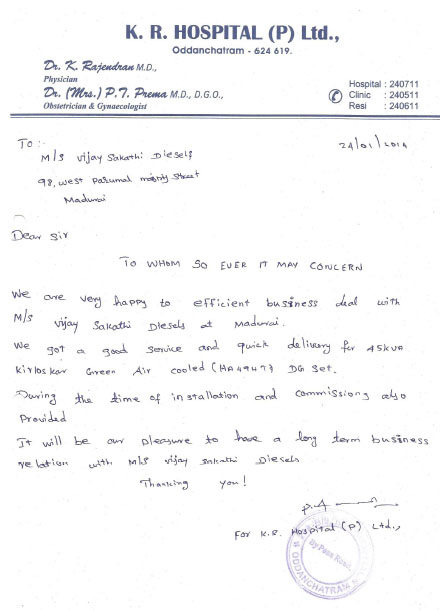 K. R. HOSPITAL (P) Ltd.,
Oddanchatram - 624 619.
Dr. K. Rajendran M.D.,
Physician
Dr. (Mrs.) P.T. Prema M.D., D.G.O.,
Obstetrician & Gynaecologist
Hospital : 240711
Clinic : 240511
Resi : 240611
To :-
24/01/2014
M/s Vijay Sakathi Diesels
98, West Perumal maistry Street
Madurai
Dear Sir
TO WHOM SO EVER IT MAY CONCERN
We are very happy to efficient business deal with
M/s Vijay Sakathi Diesels at Madurai.
We got a good service and quick delivery for 45kva
kirloskar Green Air cooled (HA494T) DG Set.
During the time of installation and commissiong also
Provided
It will be our pleasure to have a long term business
relation with M/s Vijay Sakathi Diesels
Thanking you!
For K.R. Hospital (P) Ltd.,
By Pass Road
ODDANCHATRAM